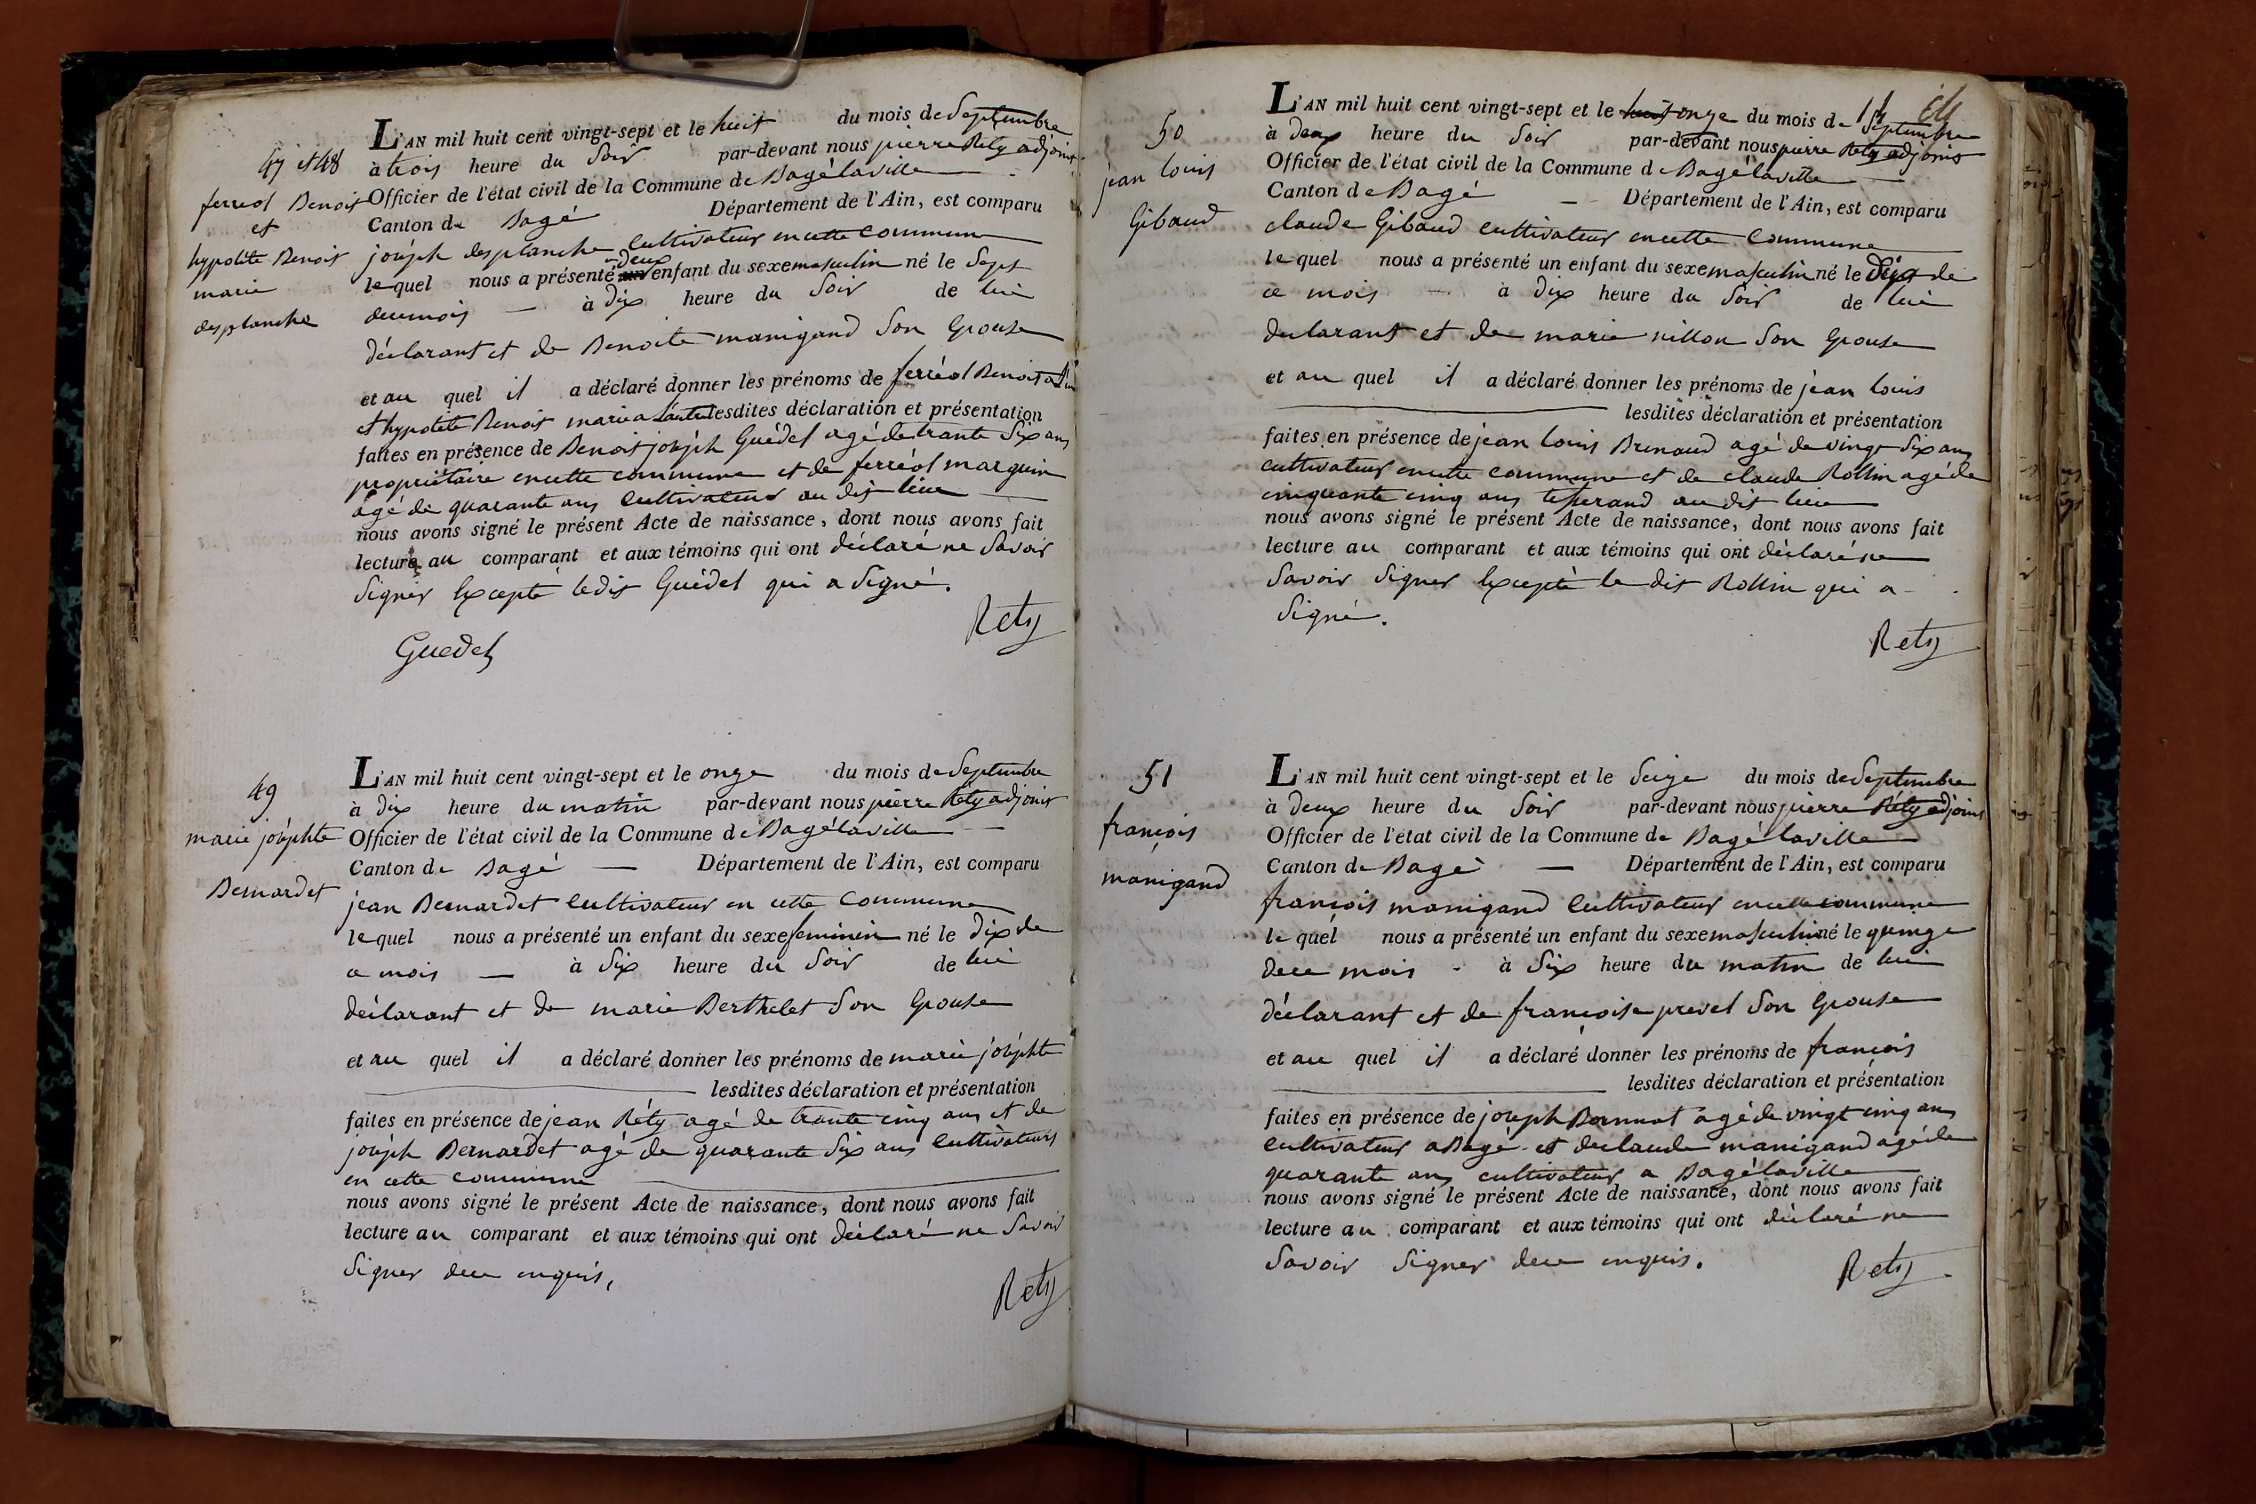 47 et 48
ferreol Benoit
et
hypolite Benoit
marie
desplanche
L'AN mil huit cent vingt-sept et le huit du mois de Septembre
à trois heure du Soir par-devant nous pierre Réty adjoint
Officier de l'état civil de la Commune de Bagé laville
Canton de Bagé Département de l'Ain, est comparu
joséph desplanche cultivateur en cette commune
lequel nous a présenté un deux enfant du sexe masculin né le Sept
de ce mois — à dix heure du Soir de lui
déclarant et de Benoite manigand Son Epouse
et au quel il a déclaré donner les prénoms de ferréol Benoit a l'un
et hypolite Benoit marie a l'autre lesdites déclaration et présentation
faites en présence de Benoit joséph Guédel agé de trante Six ans
propriétaire en cette commune et de ferréol marguin
agé de quarante ans Cultivateur au dit lieu
nous avons signé le présent Acte de naissance, dont nous avons fait
lecture au comparant et aux témoins qui ont déclaré ne Savoir
Signer Excepté ledit Guédel qui a Signé.
Rety
Guedel
49
marie joséphte
Bernardet
L'AN mil huit cent vingt-sept et le onze du mois de Septembre
à dix heure du matin par-devant nous pierre Réty adjoint
Officier de l'état civil de la Commune de Bagé laville
Canton de Bagé — Département de l'Ain, est comparu
jean Bernardet Cultivateur en cette Commune
lequel nous a présenté un enfant du sexe feminin né le dix de
ce mois — à Six heure du Soir de lui
déclarant et de marie Berthelet Son Epouse
et au quel il a déclaré donner les prénoms de marie joséphte
lesdites déclaration et présentation
faites en présence de jean Réty agé de trante cinq ans et de
joséph Bernardet agé de quarante Six ans Cultivateurs
en cette commune
nous avons signé le présent Acte de naissance, dont nous avons fait
lecture au comparant et aux témoins qui ont déclaré ne Savoir
Signer de ce enquis,
Rety
50
jean louis
Gibaud
L'AN mil huit cent vingt-sept et le huit onze du mois de Septembre
à deux heure du Soir par-devant nous pierre Réty adjoint
Officier de l'état civil de la Commune de Bagé laville
Canton de Bagé — Département de l'Ain, est comparu
claude Gibaud cultivateur en cette Commune
lequel nous a présenté un enfant du sexe masculin né le dix de
ce mois — à dix heure du Soir de lui
declarant et de marie nillon Son Epouse
et au quel il a déclaré donner les prénoms de jean louis
lesdites déclaration et présentation
faites en présence de jean louis Brunaud agé de vingt Six ans
cultivateur en cette commune et de claude Rollin agé de
cinquante cinq ans tisserand au dit lieu
nous avons signé le présent Acte de naissance, dont nous avons fait
lecture au comparant et aux témoins qui ont déclaré ne
Savoir Signer Excepté le dit Rollin qui a
Signé.
Rety
51
françois
manigand
L'AN mil huit cent vingt-sept et le Seize du mois de Septembre
à deux heure du Soir par-devant nous pierre Réty adjoint
Officier de l'état civil de la Commune de Bagé laville
Canton de Bagé — Département de l'Ain, est comparu
françois manigand Cultivateur en cette commune
lequel nous a présenté un enfant du sexe masculin né le quinze
de ce mois - à Six heure du matin de lui
déclarant et de françoise prevel Son Epouse
et au quel il a déclaré donner les prénoms de françois
lesdites déclaration et présentation
faites en présence de joseph Bonnat agé de vingt cinq ans
Cultivateur a Bagé et de claude manigand agé de
quarante ans cultivateur a Bagé laville
nous avons signé le présent Acte de naissance, dont nous avons fait
lecture au comparant et aux témoins qui ont déclaré ne
Savoir Signer de ce enquis.
Rety